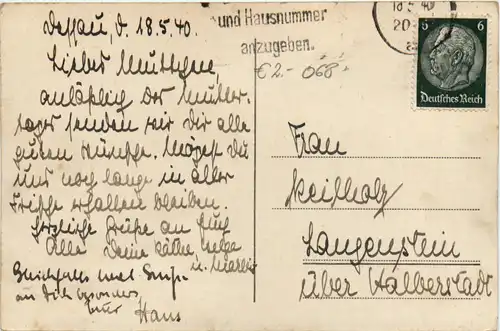 Dessau, d. 18.5.40.
Liebes Muttchen,
anläßlich des Mutter-
tages senden wir Dir alle
guten Wünsche. Mögest Du
uns noch lange in aller
Frische erhalten bleiben.
Herzliche Grüße an Euch
Alle Deine Käthe, Helga
u.
Gleichfalls viel Grüße
an Dich besonders
Hans
und Hausnummer
anzugeben.
€ 2.- 068
18.5.40
20
6 6
Deutsches Reich
Frau
Keilholz
Langenstein
über Halberstadt